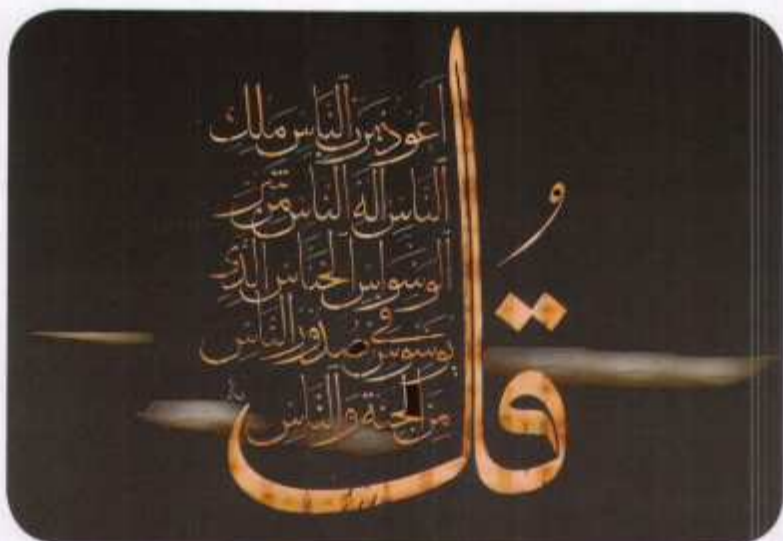 قُل
أَعُوذُ بِرَبِّ ٱلنَّاسِ مَلِكِ
ٱلنَّاسِ إِلَٰهِ ٱلنَّاسِ مِن شَرِّ
ٱلْوَسْوَاسِ ٱلْخَنَّاسِ ٱلَّذِي
يُوَسْوِسُ فِي صُدُورِ ٱلنَّاسِ
مِنَ ٱلْجِنَّةِ وَٱلنَّاسِ